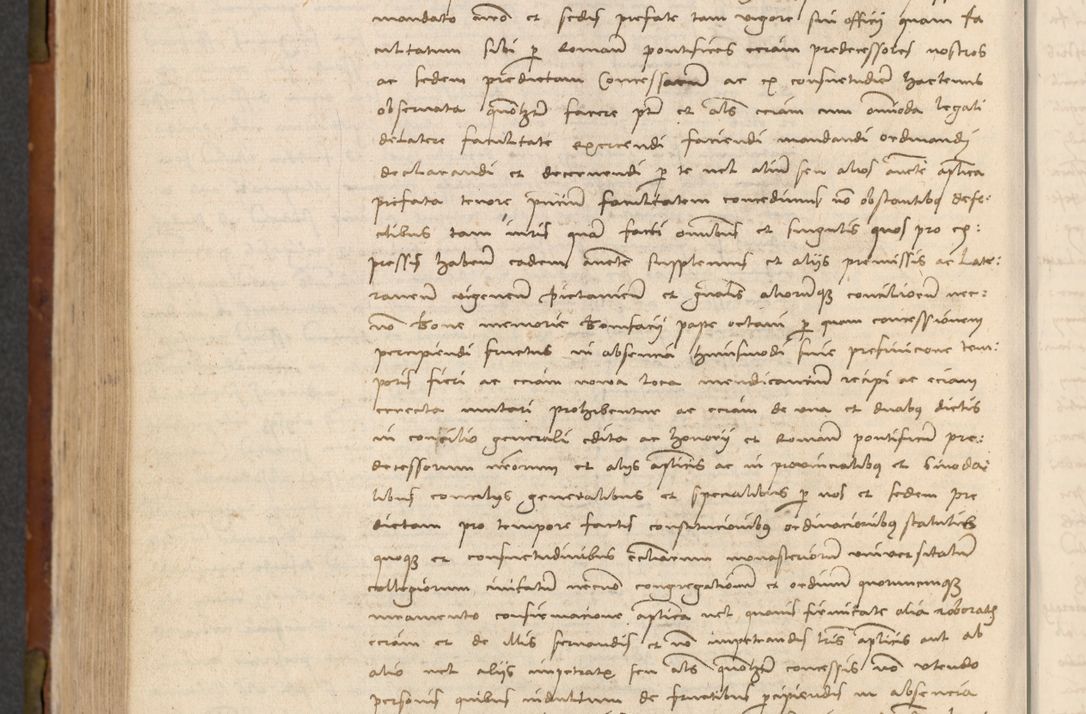 mandato nro et sedis prefate tam vigore sui officij quam fa
cultatum sibi p Roman pontifices eciam predecessores nostros
ac sedem predictam Concessarum ac ex consuetudine hactenus
observata quolzt facere pt et als eciam cum omnioda legali
delatere facultate exercendi faciendi mandandi ordinandi
declarandi et decernendi p te vel alium seu alios aucte aplica
prefata tenore pntium facultatem concedimus no obstantibq defe-
ctibus tam iuris quam facti omnibus et singulis quos pro ex:
pressis haben eadem aucte supplemus et alijs premissis ac Late:
ranen vienen Pictavien et gnalis aliorumq concilioru nec:
no bone memorie Bonifacij pape octavi p quam concessionem
percipiendi fructus in absencia huiusmodi sine prefinicione tem:
poris fieri ac eciam nova loca mendicancium recipi ac eciam
erecta mutari prohibentur ac eciam de una et duabq dictis
in concilio generali edita ac honorij et Roman pontificu pre:
decessorum nrorum et alijs aplicis ac in provincialibq et sinoda:
libus concilijs generalibus et specialibus p nos et sedem pre
dictam pro tempore factis constitucionibq ordinacionibq statutis
quoq et consuetudinibus eccliarum monasteriorum universitatum
collegiorum civitatum necno congregationum et ordinum quorumcumq
iuramento confirmacione aplica vel quavis firmitate alia roboratis
eciam et de illis servandis et no impetrandis lris aplicis aut ab
alio vel alijs impetratis seu als quolzt concessis no utendo
personis quibus indultum de fructibus percipiendis in absencia